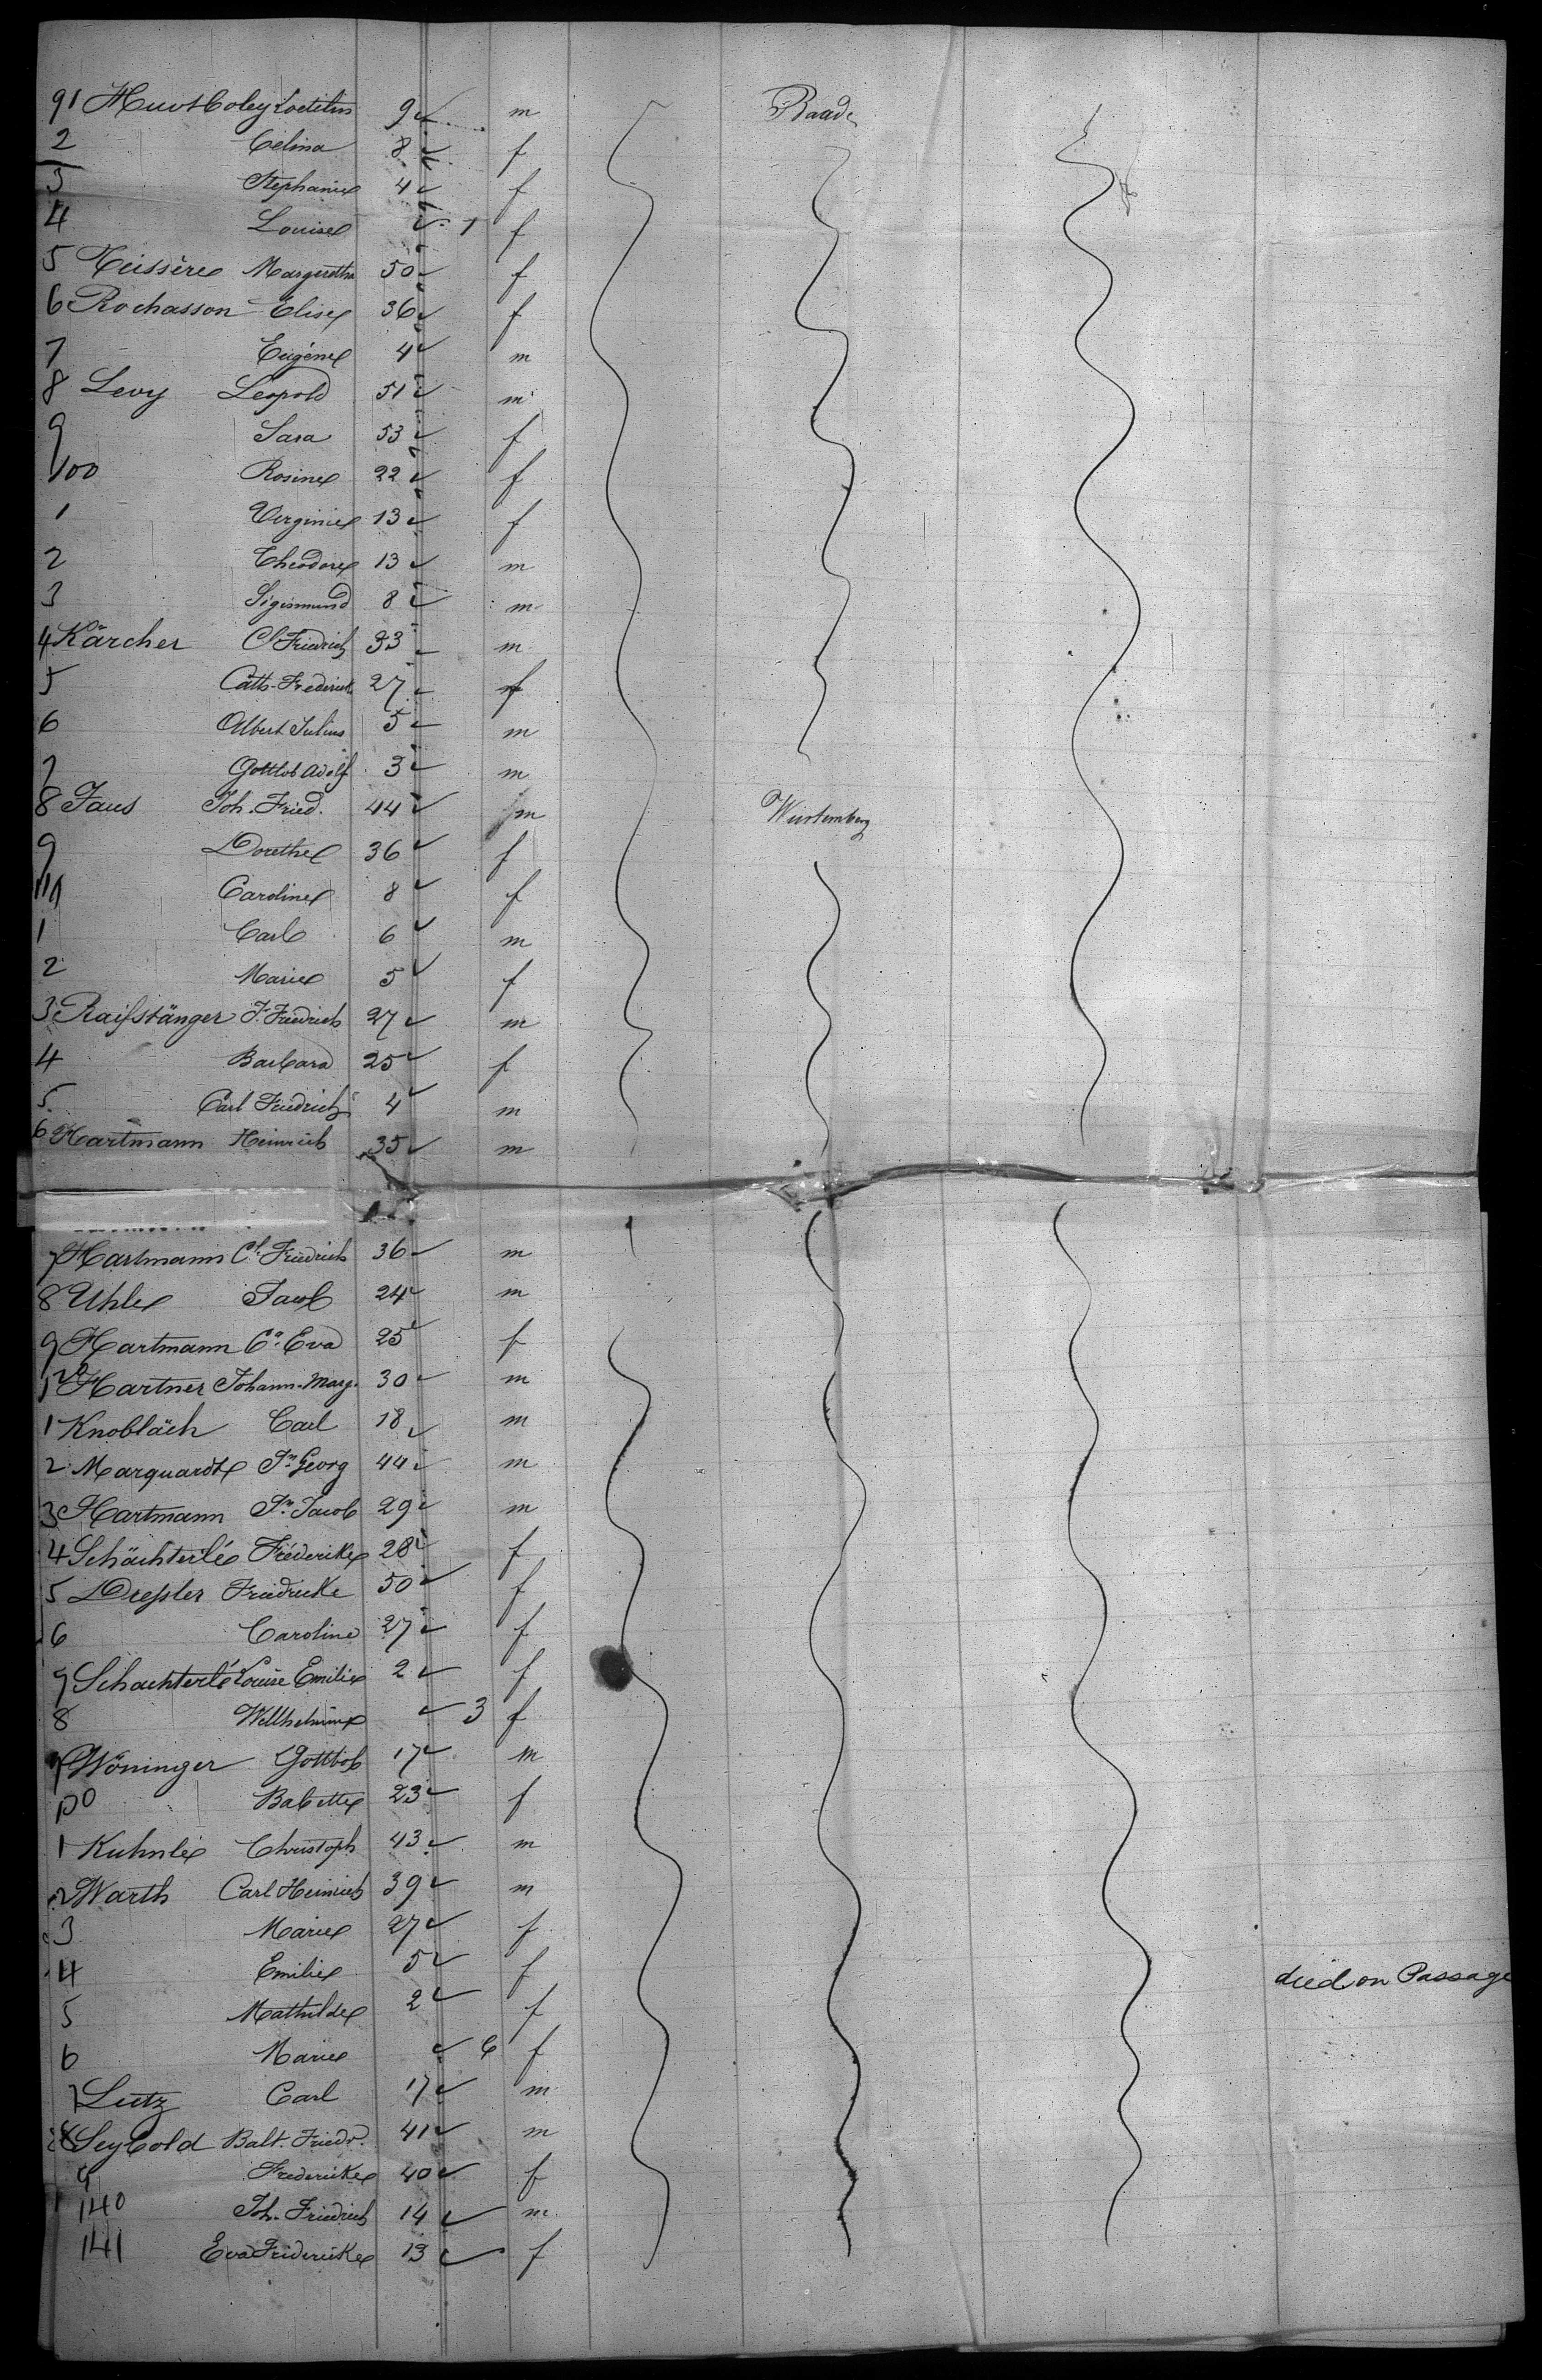 91 Huot Coley 9 m Baade
2 Celina 8 f
3 Stephanie 4 f
4 Louise 1 f
5 Teissère Margaretha 50 f
6 Rochasson Elise 36 f
7 Eugène 4 m
8 Levy Leopold 51 m
9 Sara 53 f
100 Rosine 22 f
1 Virginie 13 f
2 Theodore 13 m
3 Sigismund 8 m
4 Kärcher Cl Friedrich 33 m
5 Cath. Frederick 27 f
6 Albert Julius 5 m
7 Gottlob Adolf 3 m
8 Faus Joh. Fried. 44 m Wurtemberg
9 Dorethe 36 f
110 Caroline 8 f
1 Carl 6 m
2 Marie 5 f
3 Raifstänger J. Friedrich 27 m
4 Barbara 25 f
5 Carl Friedrich 4 m
6 Hartmann Heinrich 35 m
7 Hartmann Cl Friedrich 36 m
8 Uhle Jacob 24 m
9 Hartmann Ca Eva 25 f
120 Hartner Johann-Marg. 30 m
1 Knobläch Carl 18 m
2 Marquardt Jn Georg 44 m
3 Hartmann Jn Jacob 29 m
4 Schächterlé Fréderike 28 f
5 Dreßler Friedricke 50 f
6 Caroline 27 f
7 Schachterlé Louise Emilie 2 f
8 Willhelmine 3 f
9 Wöninger Gottlob 17 m
130 Babette 23 f
1 Kuhnle Christoph 43 m
2 Warth Carl Heinrich 39 m
3 Marie 27 f
4 Emilie 5 f died on Passage
5 Mathilde 2 f
6 Marie 6 f
7 Lutz Carl 17 m
8 Seybold Balt. Friedr. 41 m
9 Frederike 40 f
140 Joh. Friedrich 14 m
141 Eva Friderike 13 f